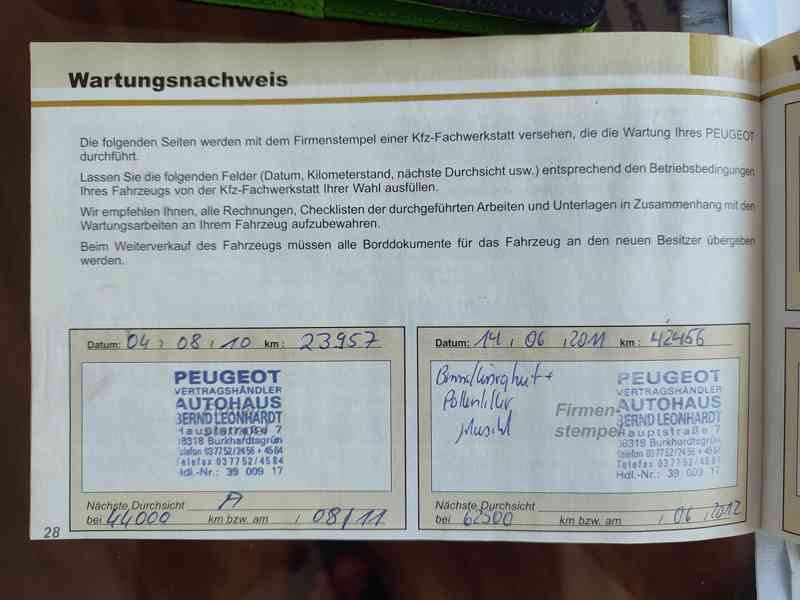 Wartungsnachweis
Die folgenden Seiten werden mit dem Firmenstempel einer Kfz-Fachwerkstatt versehen, die die Wartung Ihres PEUGEOT
durchführt.
Lassen Sie die folgenden Felder (Datum, Kilometerstand, nächste Durchsicht usw.) entsprechend den Betriebsbedingungen
Ihres Fahrzeugs von der Kfz-Fachwerkstatt Ihrer Wahl ausfüllen.
Wir empfehlen Ihnen, alle Rechnungen, Checklisten der durchgeführten Arbeiten und Unterlagen in Zusammenhang mit den
Wartungsarbeiten an Ihrem Fahrzeug aufzubewahren.
Beim Weiterverkauf des Fahrzeugs müssen alle Borddokumente für das Fahrzeug an den neuen Besitzer übergeben
werden.
Datum: 04 / 08 / 10 km: 23957
PEUGEOT
VERTRAGSHÄNDLER
AUTOHAUS
BERND LEONHARDT
Hauptstraße 7
08318 Burkhardtsgrün
Telefon 037752/2456 + 4584
Telefax 037752/4584
Hdl.-Nr.: 39 009 17
Nächste Durchsicht A
bei 44000 km bzw. am / 08/11
Datum: 14 / 06 / 2011 km: 42456
Pollenfilter
Firmen-
stempel
PEUGEOT
VERTRAGSHÄNDLER
AUTOHAUS
BERND LEONHARDT
Hauptstraße 7
08318 Burkhardtsgrün
Telefon 037752/2456 + 4584
Telefax 037752/4584
Hdl.-Nr.: 39 009 17
Nächste Durchsicht
bei 62500 km bzw. am / 06 / 2012
28